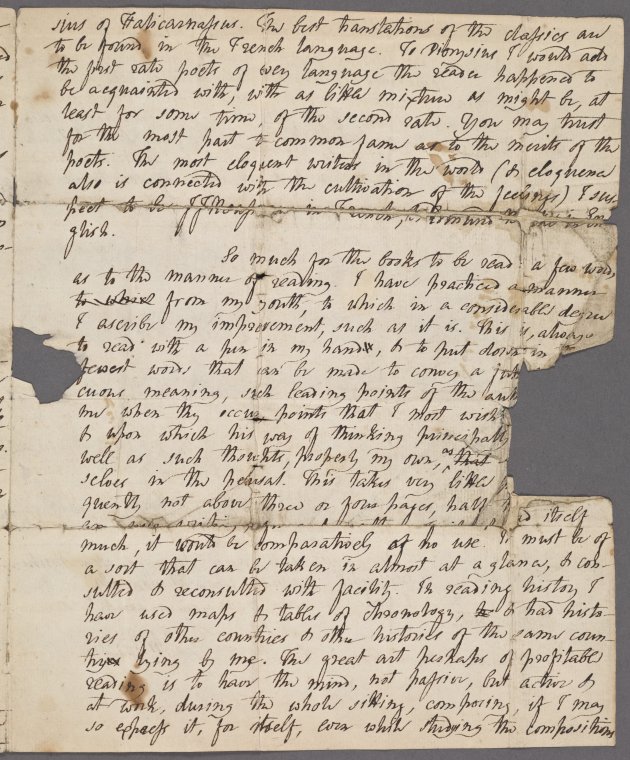 sius of Halicarnassus. The best translations of the classics are
to be found in the French language. To Dionysius I would add
the first rate poets of every language the reader happened to
be acquainted with, with as little mixture as might be, at
least for some time, of the second rate. You may trust
for the most part to common fame as to the merits of the
poets. The most eloquent writers in the world (& eloquence
also is connected with the cultivation of the feelings) I sus
pect to be J J Rousseau in French, & in En
glish.
So much for the books to be read: a few words
as to the manner of reading. I have practiced a manner
to which from my youth, to which in a considerable degree
I ascribe my improvement, such as it is. This is, always
to read with a pen in my hand, & to put down in
fewest words that can be made to convey a
cuous meaning, such leading points of the
me when they occur points that I most wish
& upon which his way of thinking principally
well as such thoughts, properly my own, as that
selves in the perusal. This takes very little
quently not above three or four pages, half
itself
much, it would be comparatively of no use. It must be of
a sort that can be taken in almost at a glance, & con-
sulted & reconsulted with facility. In reading history I
have used maps & tables of chronology, & had histo
ries of other countries & other histories of the same coun
try lying by me. The great art perhaps of profitable
reading is to have the mind, not passive, but active &
at work, during the whole sitting, composing, if I may
so express it, for itself, even while studying the compositions